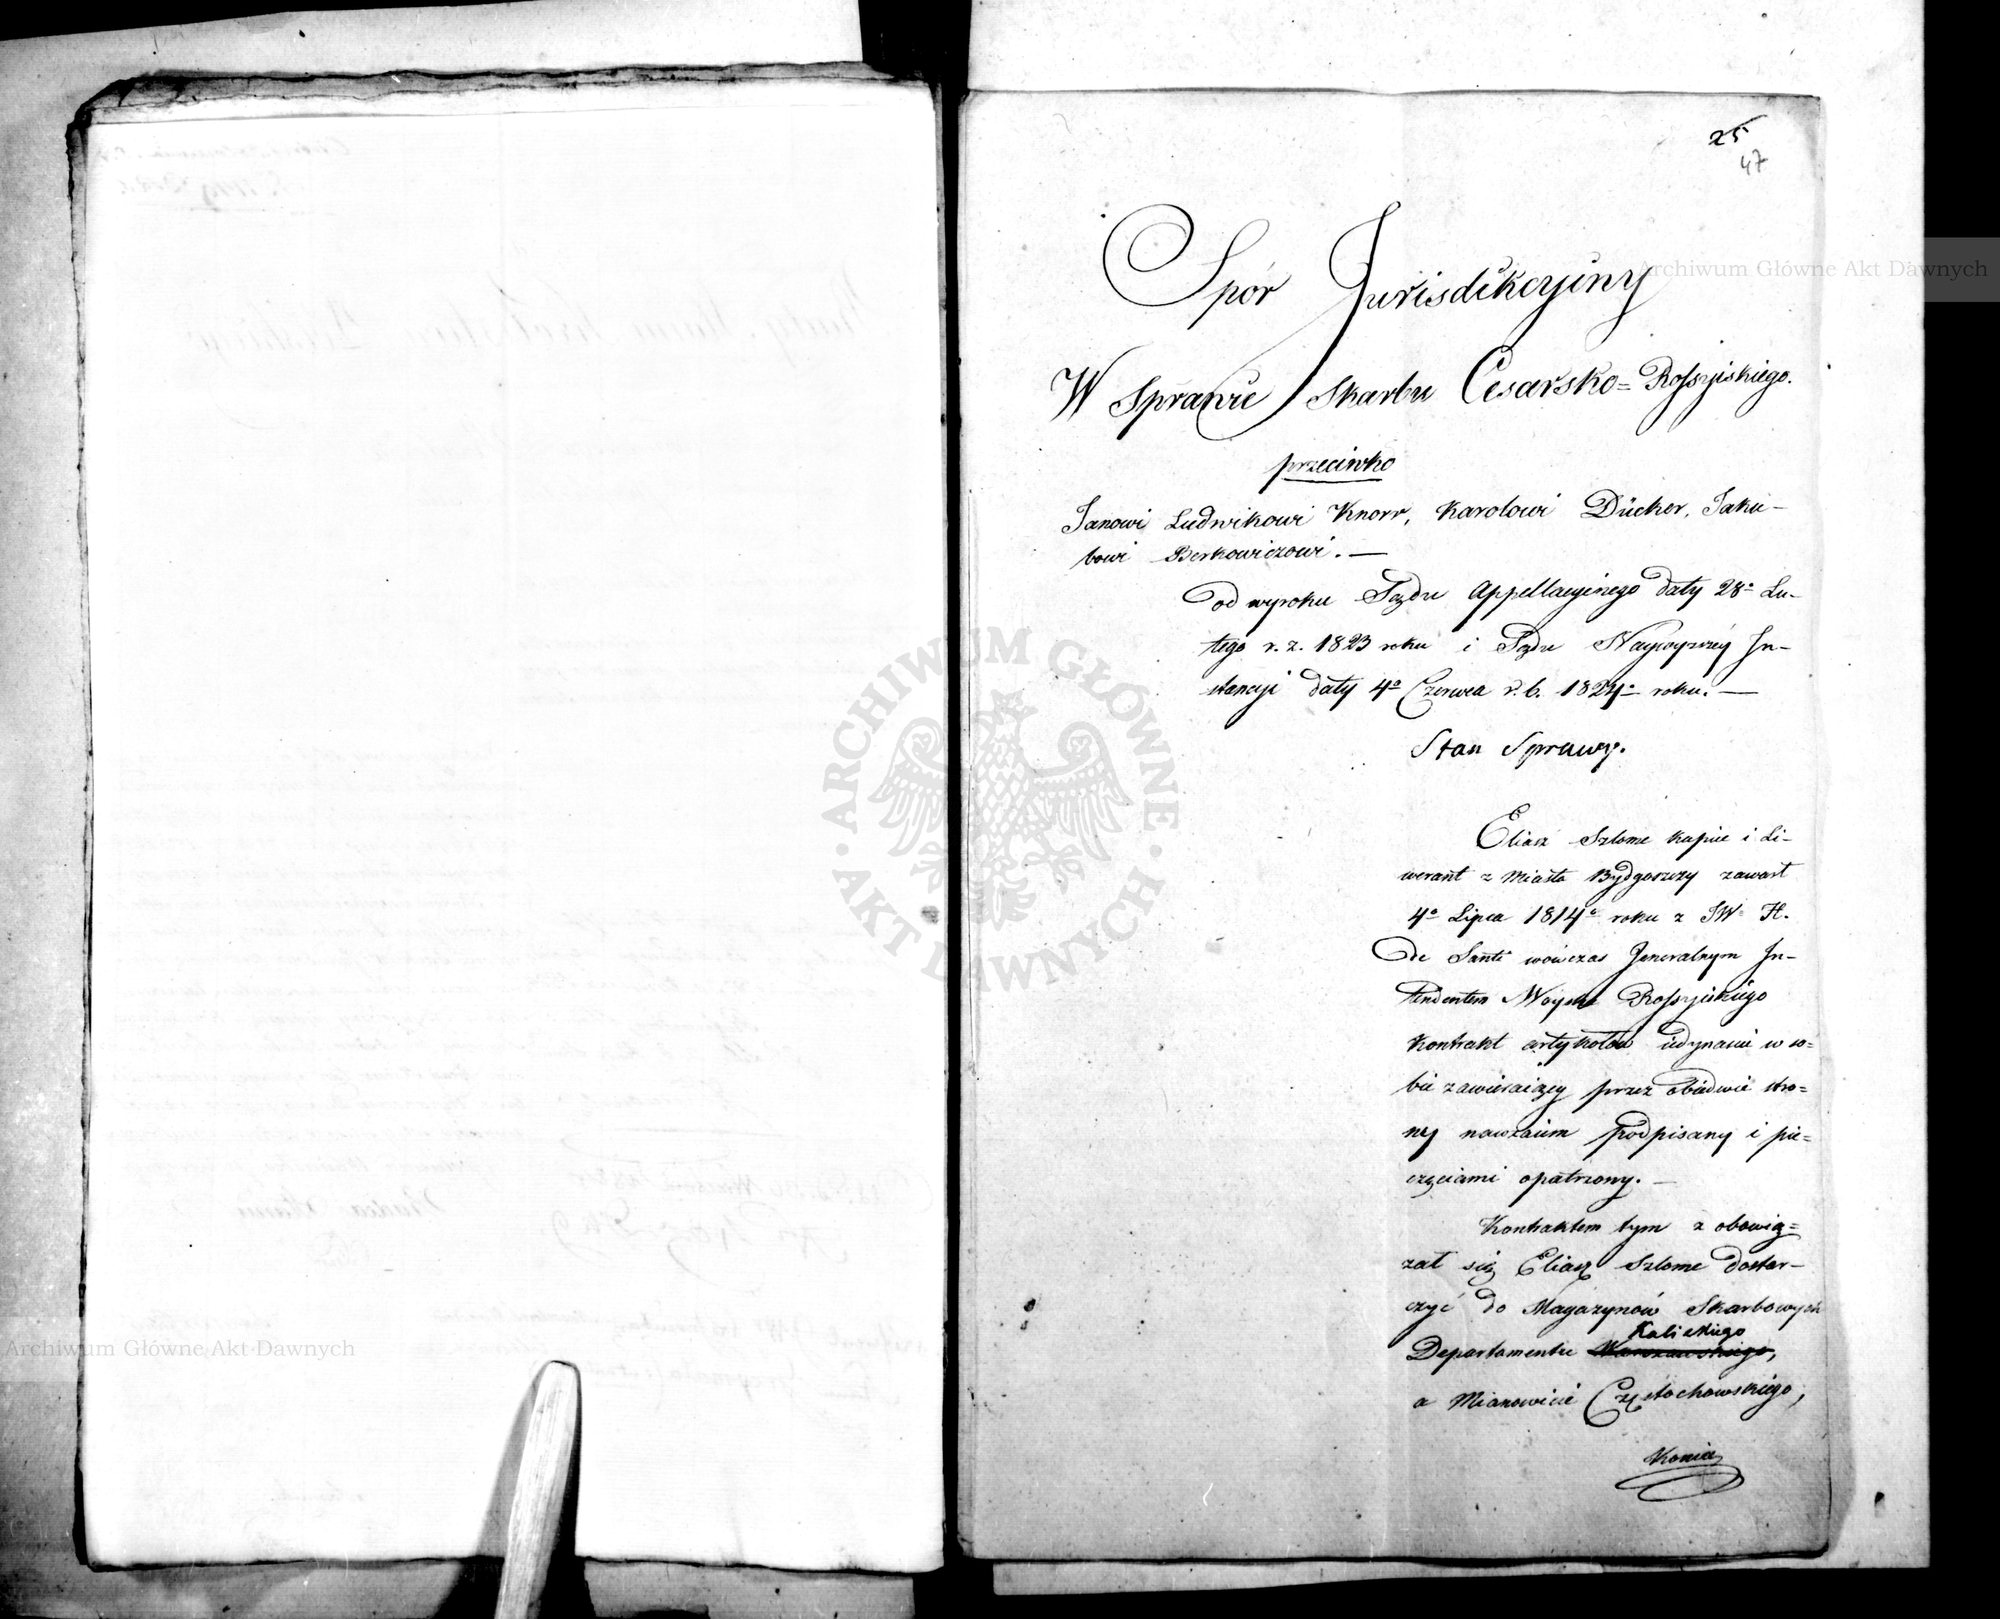 25
47
Spór Jurisdikcyiny
W Sprawie Skarbu Cesarsko=Rossyiskiego.
przeciwko
Janowi Ludwikowi Knorr, Karolowi Dücker, Jaku-
bowi Berkowiczowi. —
od wyroku Sądu Appellacyinego daty 28º Lu-
tego r. z. 1823 roku i Sądu Naywyższey In-
stancyi daty 4º Czerwca r. b. 1824º roku. —
Stan Sprawy.
Eliasz Szlome kupiec i Li-
werant z Miasta Bydgoszczy zawarł
4º Lipca 1814º roku z JW H.
de Santi wówczas Jeneralnym In-
tendentem Woyska Rossyiskiego
Kontrakt artykołów iedynaście w so-
bie zawieraiący przez obiedwie stro=
ny nawzaiem podpisany i pie=
częciami opatrzony. —
Kontraktem tym z obowią=
zał się Eliasz Szlome dostar-
czyć do Magazynów Skarbowych
Kaliskiego
Departamentu Warszawskiego,
a Mianowicie Częstochowskiego,
Konie
Archiwum Główne Akt Dawnych
Archiwum Główne Akt Dawnych
ARCHIWUM GŁÓWNE
AKT DAWNYCH